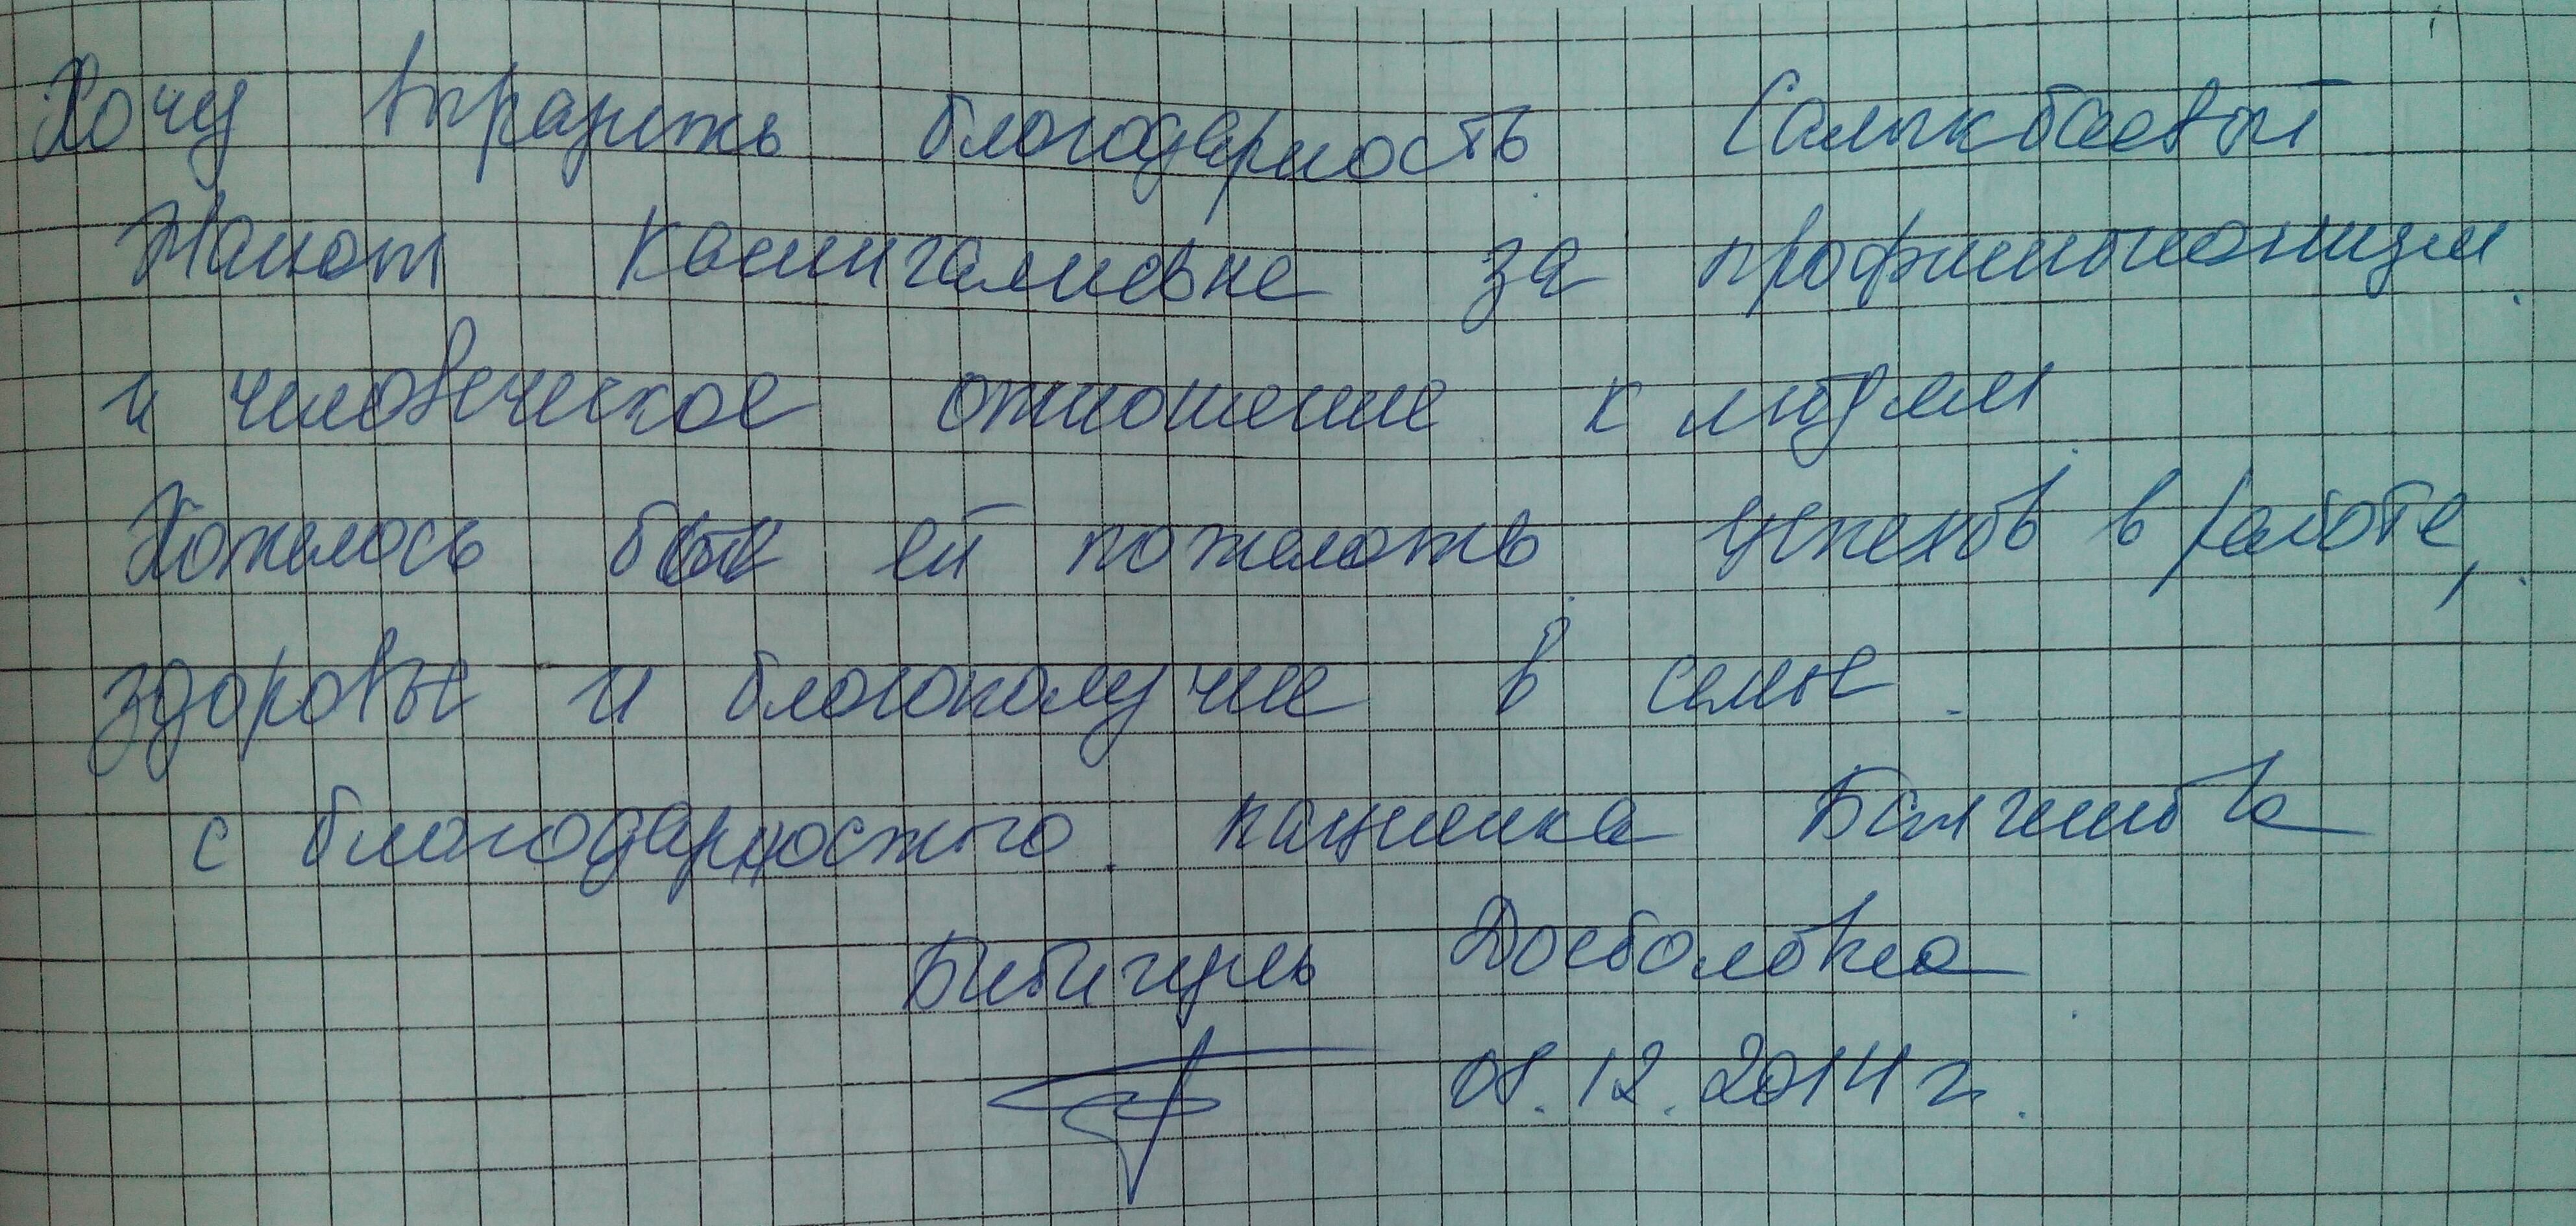 Хочу выразить благодарность Салыкбаевой
Жанат Кашигалиевне за профессионализм
и человеческое отношение к людям
Хотелось бы ей пожелать успехов в работе,
здоровье и благополучие в семье.
с благодарностью. пациенка
Бибигуль Досболовна
08.12.2014 г.